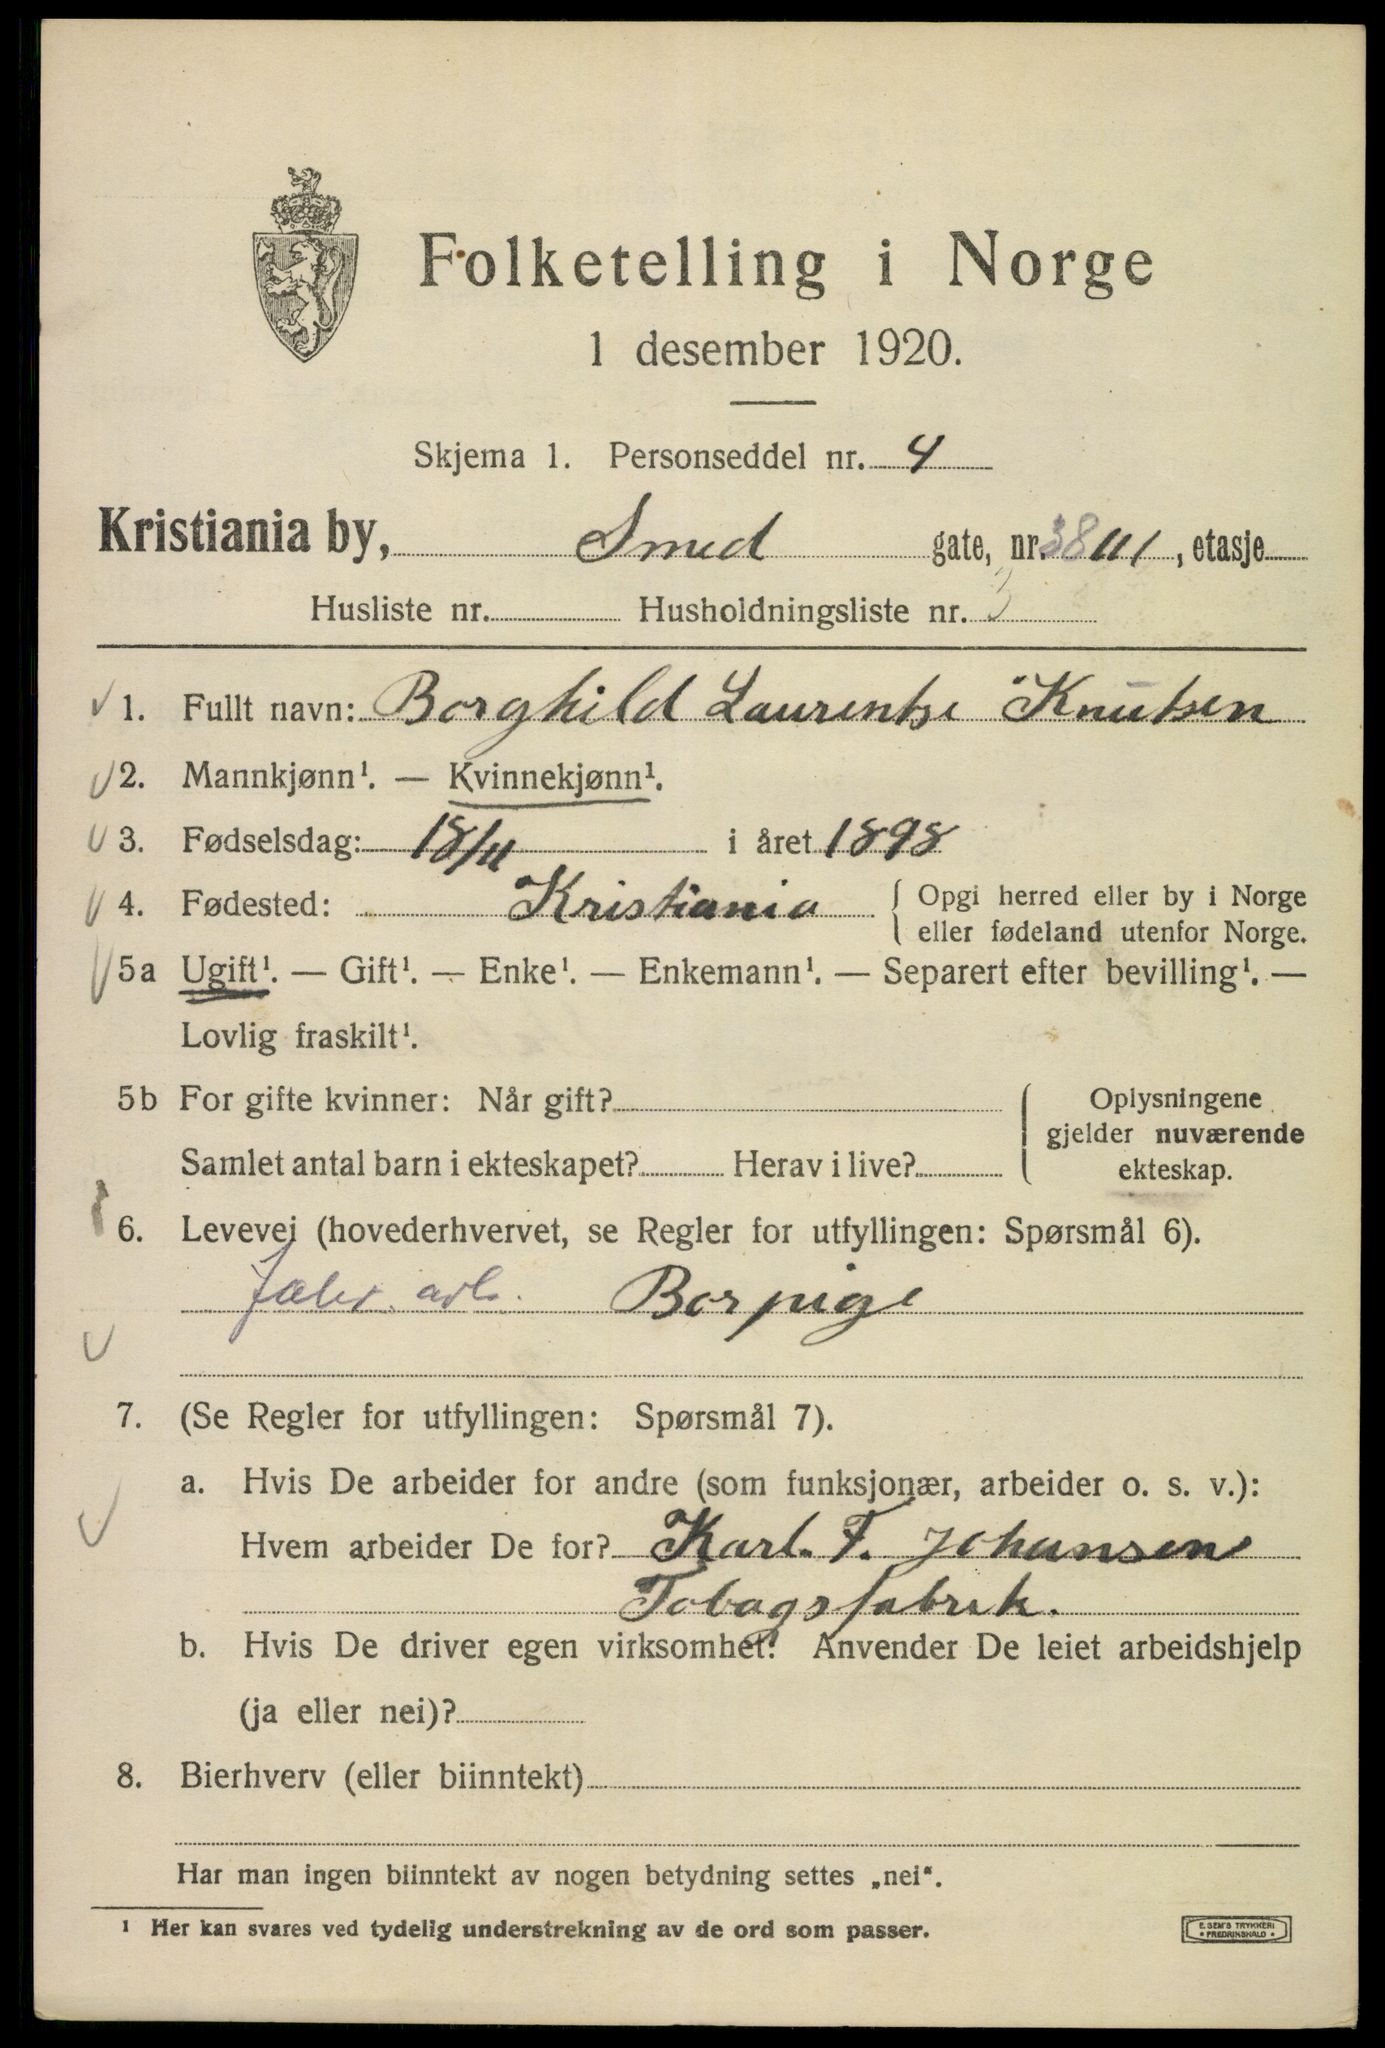 Folketelling i Norge
1 desember 1920.
Skjema 1. Personseddel nr. 4
Kristiania by, Smed gate, nr. 38 III, etasje
Husliste nr. Husholdningsliste nr. 3
1. Fullt navn: Borghild Laurentse Knutsen
2. Mannkjønn¹. — Kvinnekjønn¹.
3. Fødselsdag: 18/11 i året 1898
4. Fødested: Kristiania { Opgi herred eller by i Norge
eller fødeland utenfor Norge.
5a Ugift¹. — Gift¹. — Enke¹. — Enkemann¹. — Separert efter bevilling¹. —
Lovlig fraskilt¹.
5b For gifte kvinner: Når gift? { Oplysningene
gjelder nuværende
Samlet antal barn i ekteskapet? Herav i live? ekteskap.
6. Levevei (hovederhvervet, se Regler for utfyllingen: Spørsmål 6).
arb. Borpige
7. (Se Regler for utfyllingen: Spørsmål 7).
a. Hvis De arbeider for andre (som funksjonær, arbeider o. s. v.):
Hvem arbeider De for? Karl. F. Johansen
Tobagsfabrik.
b. Hvis De driver egen virksomhet: Anvender De leiet arbeidshjelp
(ja eller nei)?
8. Bierhverv (eller biinntekt)
Har man ingen biinntekt av nogen betydning settes „nei“.
¹ Her kan svares ved tydelig understrekning av de ord som passer.
E. SEM'S TRYKKERI
* FREDRIKSHALD *